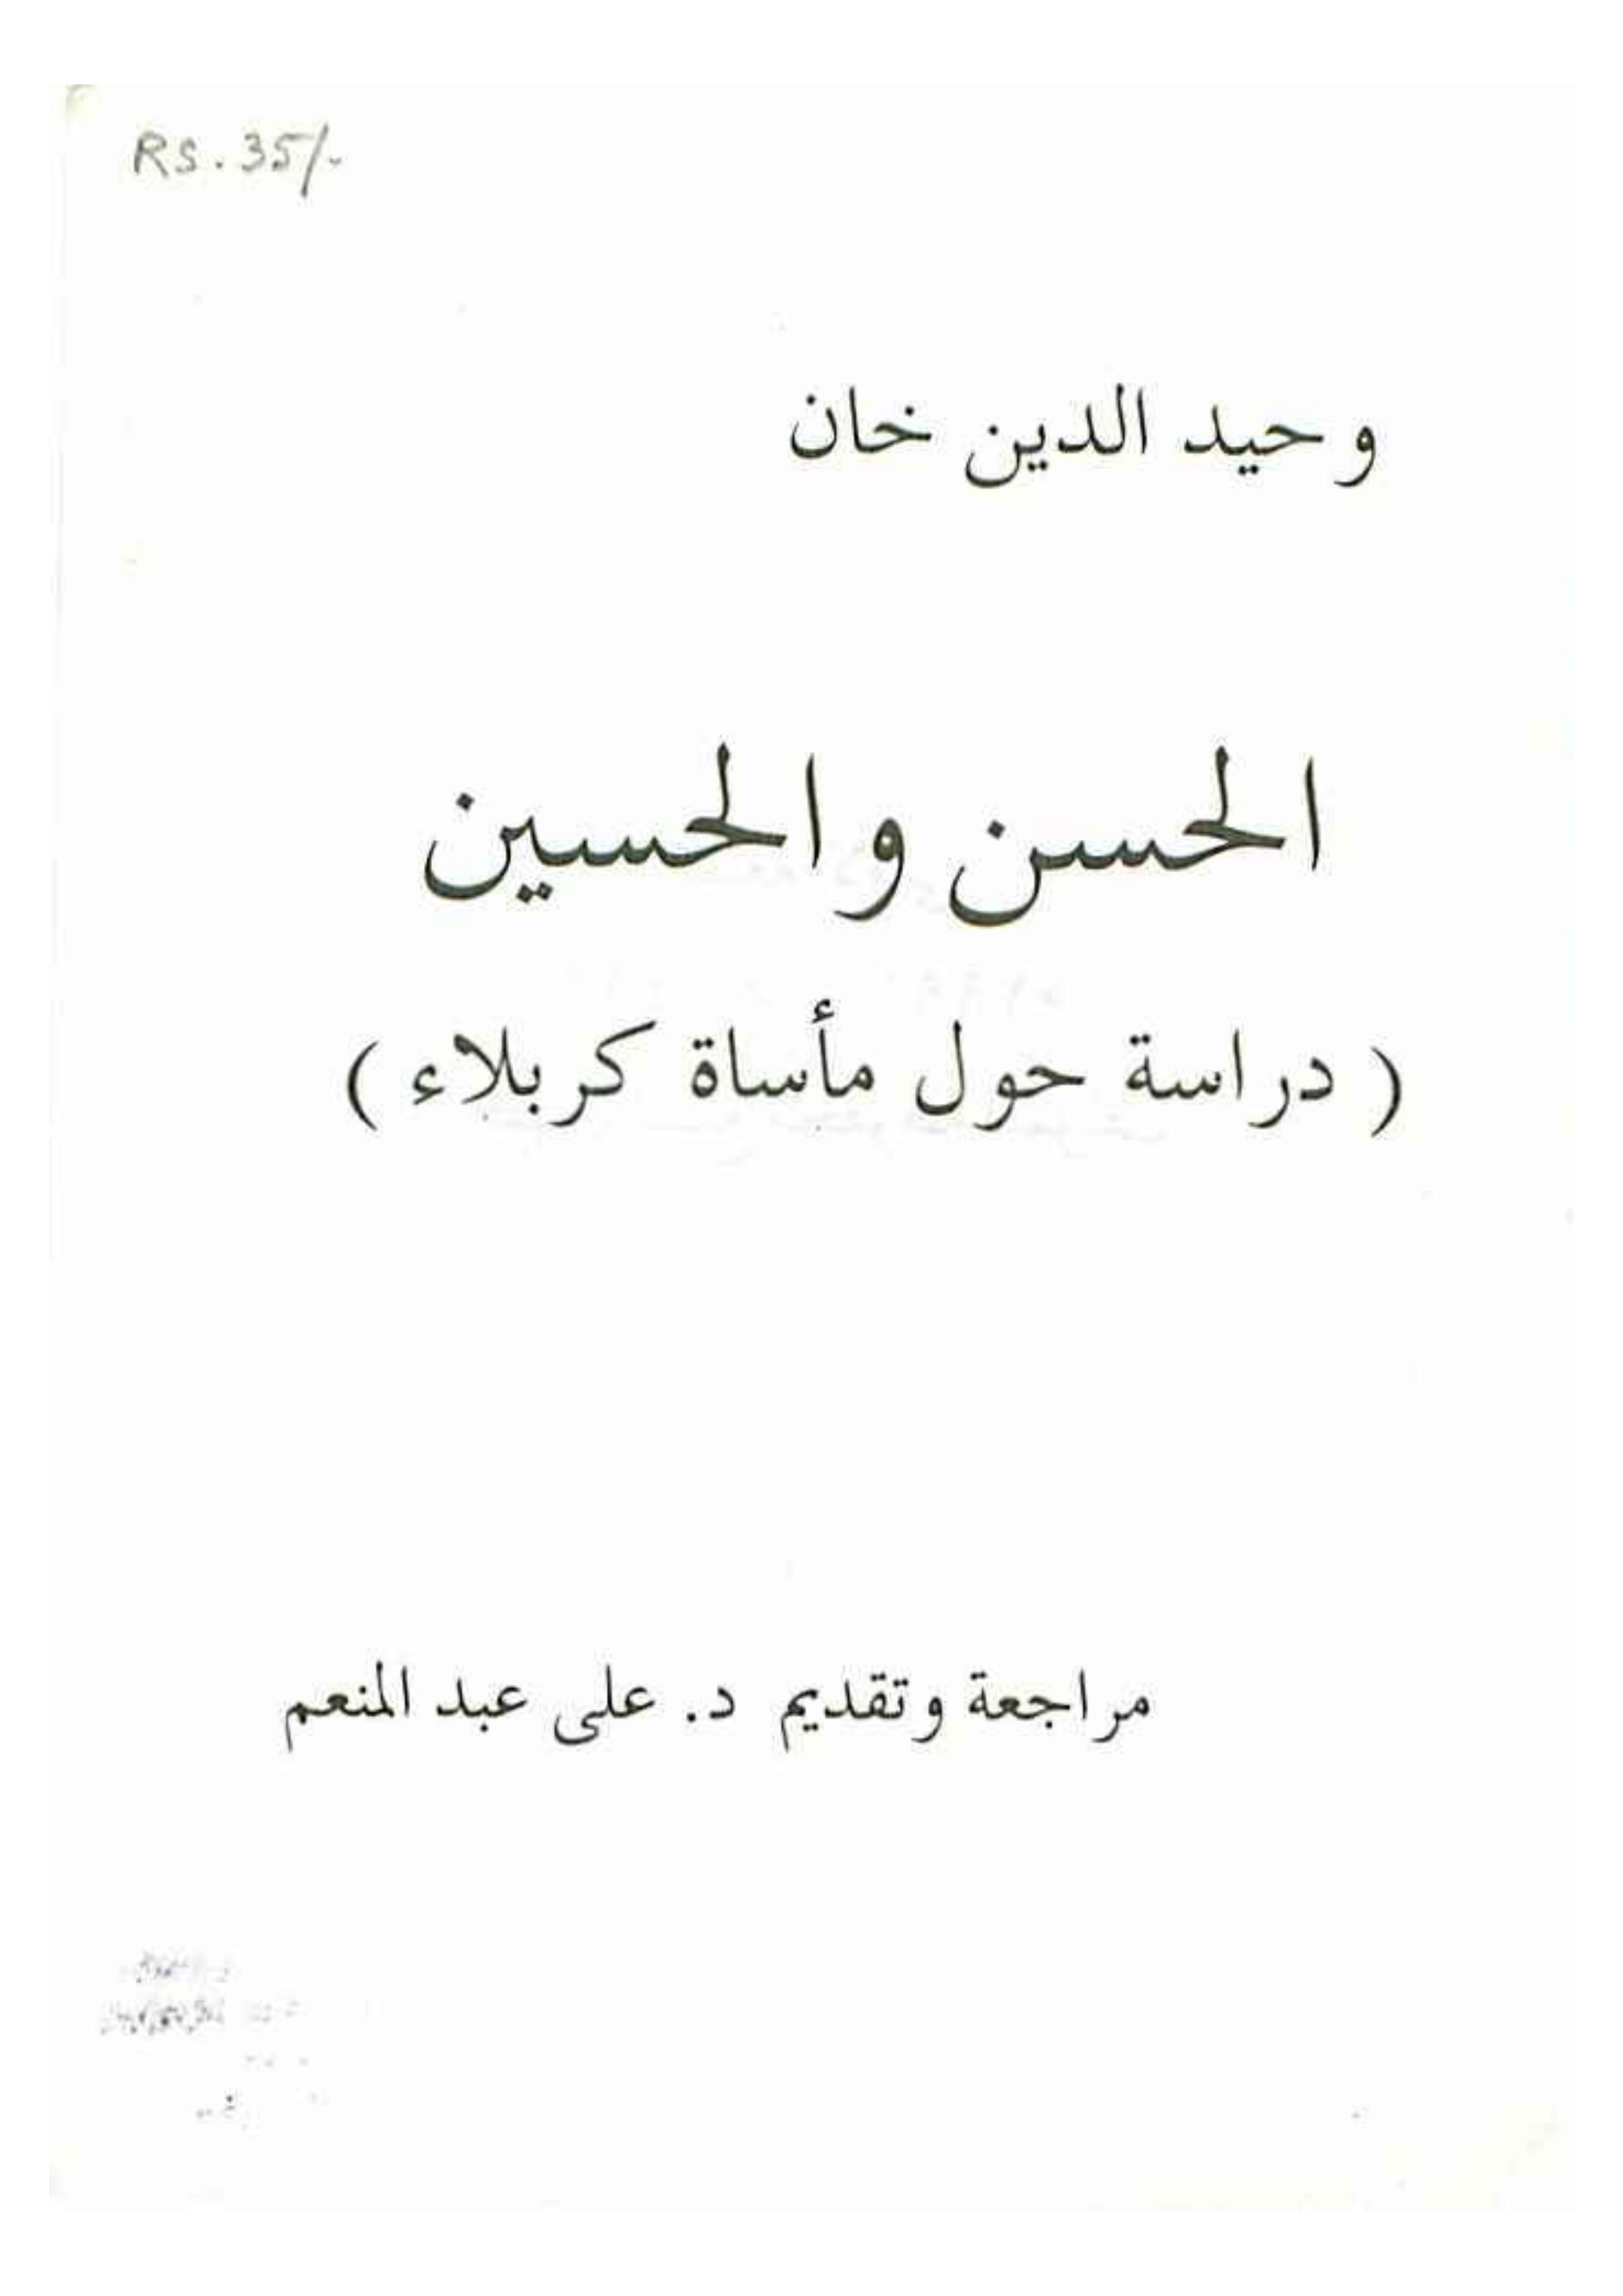 RS. 35/-
وحيد الدين خان
الحسن والحسين
( دراسة حول مأساة كربلاء )
مراجعة وتقديم د. على عبد المنعم